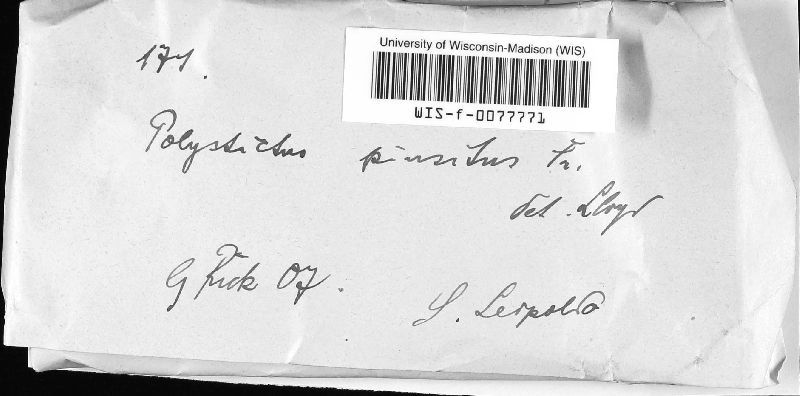 171.
University of Wisconsin-Madison (WIS)
WIS-f-0077771
Polystictus pinsitus Fr.
det. Lloyd
G Rick 07.
S. Leopoldo